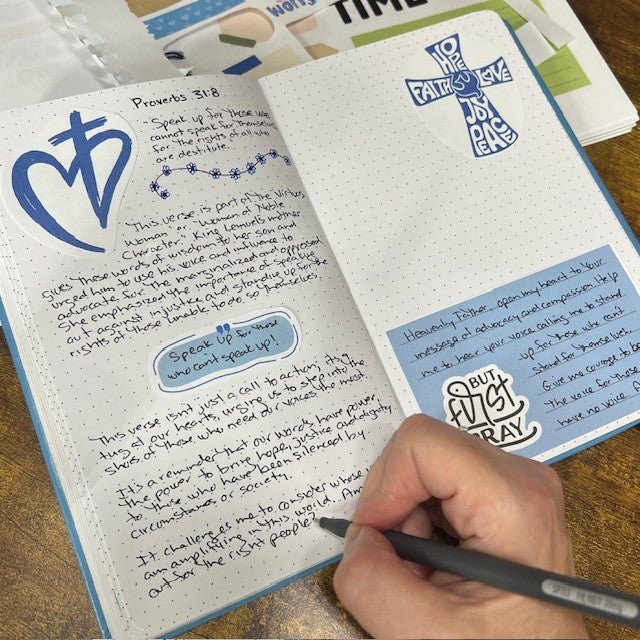 worry
TIME
Proverbs 31:8
"Speak up for those who
cannot speak for themselves
for the rights of all who
are destitute.
This verse is part of the "Virtuous
Woman" or "Woman of Noble
Character." King Lemuel's mother
gives these words of wisdom to her son and
urged him to use his voice and influence to
advocate for the marginalized and oppressed.
She emphasized the importance of speaking
out against injustice and standing up for the
rights of those unable to do so themselves.
Speak up for those
who can't speak up!
This verse isn't just a call to action, it's a
tug at our hearts, urging us to step into the
shoes of those who need our voices the most.
It's a reminder that our words have power,
the power to bring hope, justice and dignity
to those who have been silenced by
circumstances or society.
It challenges me to consider whose
am amplifying in this world. Am
out for the right people?
HOPE
FAITH LOVE
JOY
PEACE
Heavenly Father, open my heart to your
message of advocacy and compassion. Help
me to hear your voice calling me to stand
up for those who can't
stand for themselves.
Give me courage to be
the voice for those
have no voice.
BUT
First
PRAY